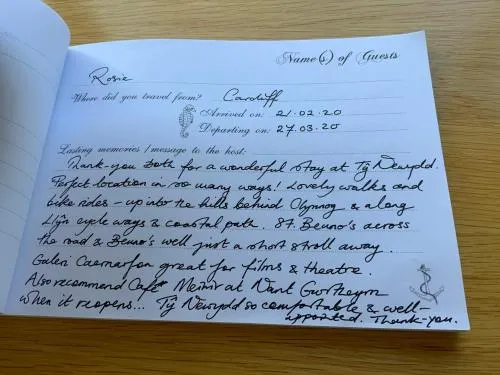 Name(s) of Guests
Rosie
Where did you travel from? Cardiff
Arrived on: 21.02.20
Departing on: 27.03.20
Lasting memories / message to the host:
Thank-you both for a wonderful stay at Tŷ Newydd.
Perfect location in so many ways! Lovely walks and
bike rides - up into the hills behind Clynnog & along
Llŷn cycle ways & coastal path. St. Beuno's across
the road & Beuno's well just a short stroll away.
Galeri Caernarfon great for films & theatre.
Also recommend Cafe Meinir at Nant Gwrtheyrn
when it reopens... Tŷ Newydd so comfortable & well-
appointed. Thank-you.